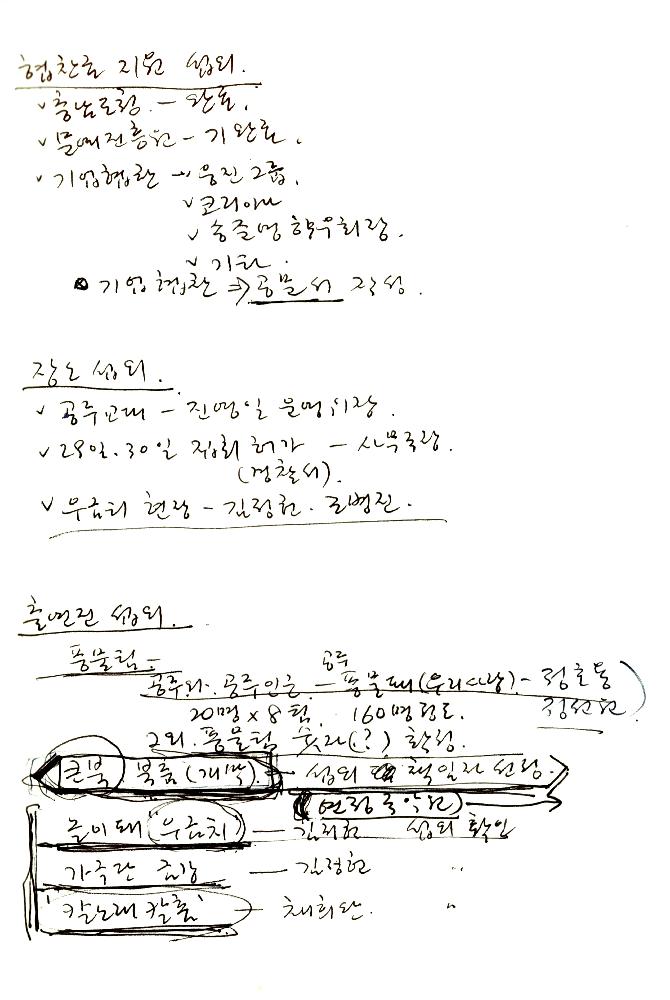 협찬금 지원 섭외.
√ 충남도청. - 완료.
√ 문예진흥원 - 기완료.
√ 기업협찬 → 웅진그룹.
√ 코리아나
√ 송준영 향우회장.
√ 기타.
기업협찬 ⇒ 공문서 작성.
장소 섭외.
√ 공주교대 - 진영일 운영위장.
√ 29일. 30일 집회 허가 - 사무국장.
(경찰서).
√ 우금티 현장 - 김정헌. 조병진.
출연진 섭외.
풍물팀 -
공주
공주와 공주인근 - 풍물패(우리사랑) - 정호동
20명 × 8팀. 160명 정도.
그외. 풍물팀 숫자(?) 확정.
큰북 북춤(개막). - 섭외 책임자 선정.
놀이패 "우금치" - 섭외 확인
가극단 금강 - 김정헌 "
"칼노래 칼춤" - 채희완. "